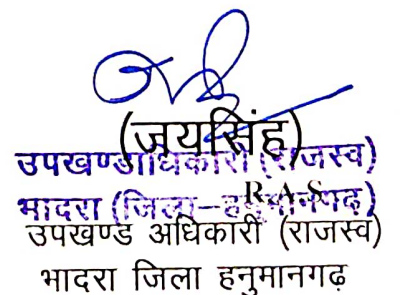 (जयसिंह)
उपखण्डाधिकारी (राजस्व)
R.A.S.
भादरा (जिला-हनुमानगढ़)
उपखण्ड अधिकारी (राजस्व)
भादरा जिला हनुमानगढ़